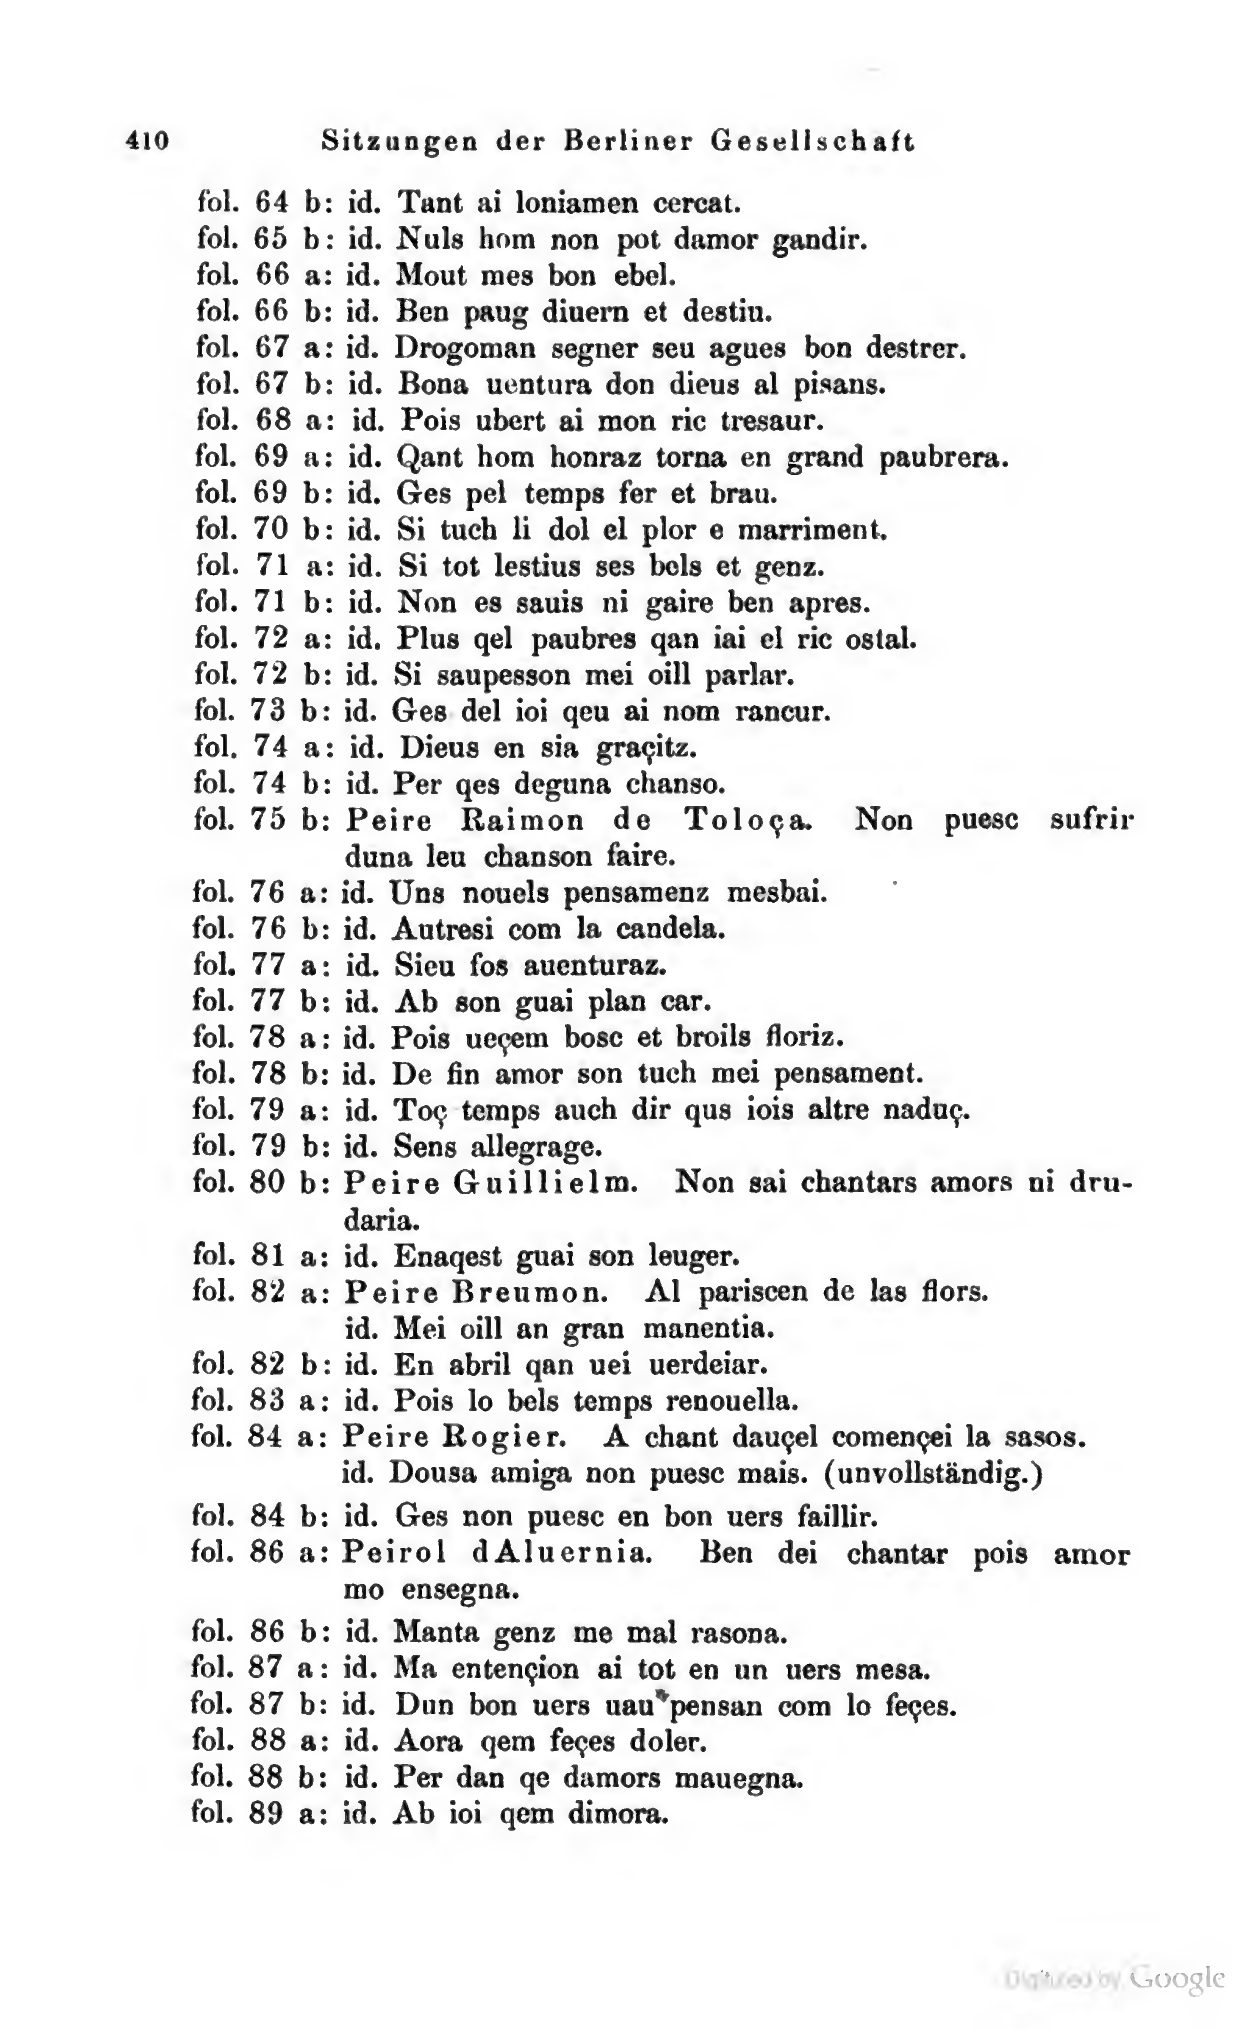 410 Sitzungen der Berliner Gesellschaft
fol. 64 b: id. Tant ai loniamen cercat.
fol. 65 b: id. Nuls hom non pot damor gandir.
fol. 66 a: id. Mout mes bon ebel.
fol. 66 b: id. Ben paug diuern et destiu.
fol. 67 a: id. Drogoman segner seu agues bon destrer.
fol. 67 b: id. Bona uentura don dieus al pisans.
fol. 68 a: id. Pois ubert ai mon ric tresaur.
fol. 69 a: id. Qant hom honraz torna en grand paubrera.
fol. 69 b: id. Ges pel temps fer et brau.
fol. 70 b: id. Si tuch li dol el plor e marriment.
fol. 71 a: id. Si tot lestius ses bels et genz.
fol. 71 b: id. Non es sauis ni gaire ben apres.
fol. 72 a: id. Plus qel paubres qan iai el ric ostal.
fol. 72 b: id. Si saupesson mei oill parlar.
fol. 73 b: id. Ges del ioi qeu ai nom rancur.
fol. 74 a: id. Dieus en sia graçitz.
fol. 74 b: id. Per qes deguna chanso.
fol. 75 b: Peire Raimon de Toloça. Non puesc sufrir
duna leu chanson faire.
fol. 76 a: id. Uns nouels pensamenz mesbai.
fol. 76 b: id. Autresi com la candela.
fol. 77 a: id. Sieu fos auenturaz.
fol. 77 b: id. Ab son guai plan car.
fol. 78 a: id. Pois ueçem bosc et broils floriz.
fol. 78 b: id. De fin amor son tuch mei pensament.
fol. 79 a: id. Toç temps auch dir qus iois altre naduç.
fol. 79 b: id. Sens allegrage.
fol. 80 b: Peire Guillielm. Non sai chantars amors ni dru-
daria.
fol. 81 a: id. Enaqest guai son leuger.
fol. 82 a: Peire Breumon. Al pariscen de las flors.
id. Mei oill an gran manentia.
fol. 82 b: id. En abril qan uei uerdeiar.
fol. 83 a: id. Pois lo bels temps renouella.
fol. 84 a: Peire Rogier. A chant dauçel començei la sasos.
id. Dousa amiga non puesc mais. (unvollständig.)
fol. 84 b: id. Ges non puesc en bon uers faillir.
fol. 86 a: Peirol dAluernia. Ben dei chantar pois amor
mo ensegna.
fol. 86 b: id. Manta genz me mal rasona.
fol. 87 a: id. Ma entençion ai tot en un uers mesa.
fol. 87 b: id. Dun bon uers uau pensan com lo feçes.
fol. 88 a: id. Aora qem feçes doler.
fol. 88 b: id. Per dan qe damors mauegna.
fol. 89 a: id. Ab ioi qem dimora.
Digitized by Google